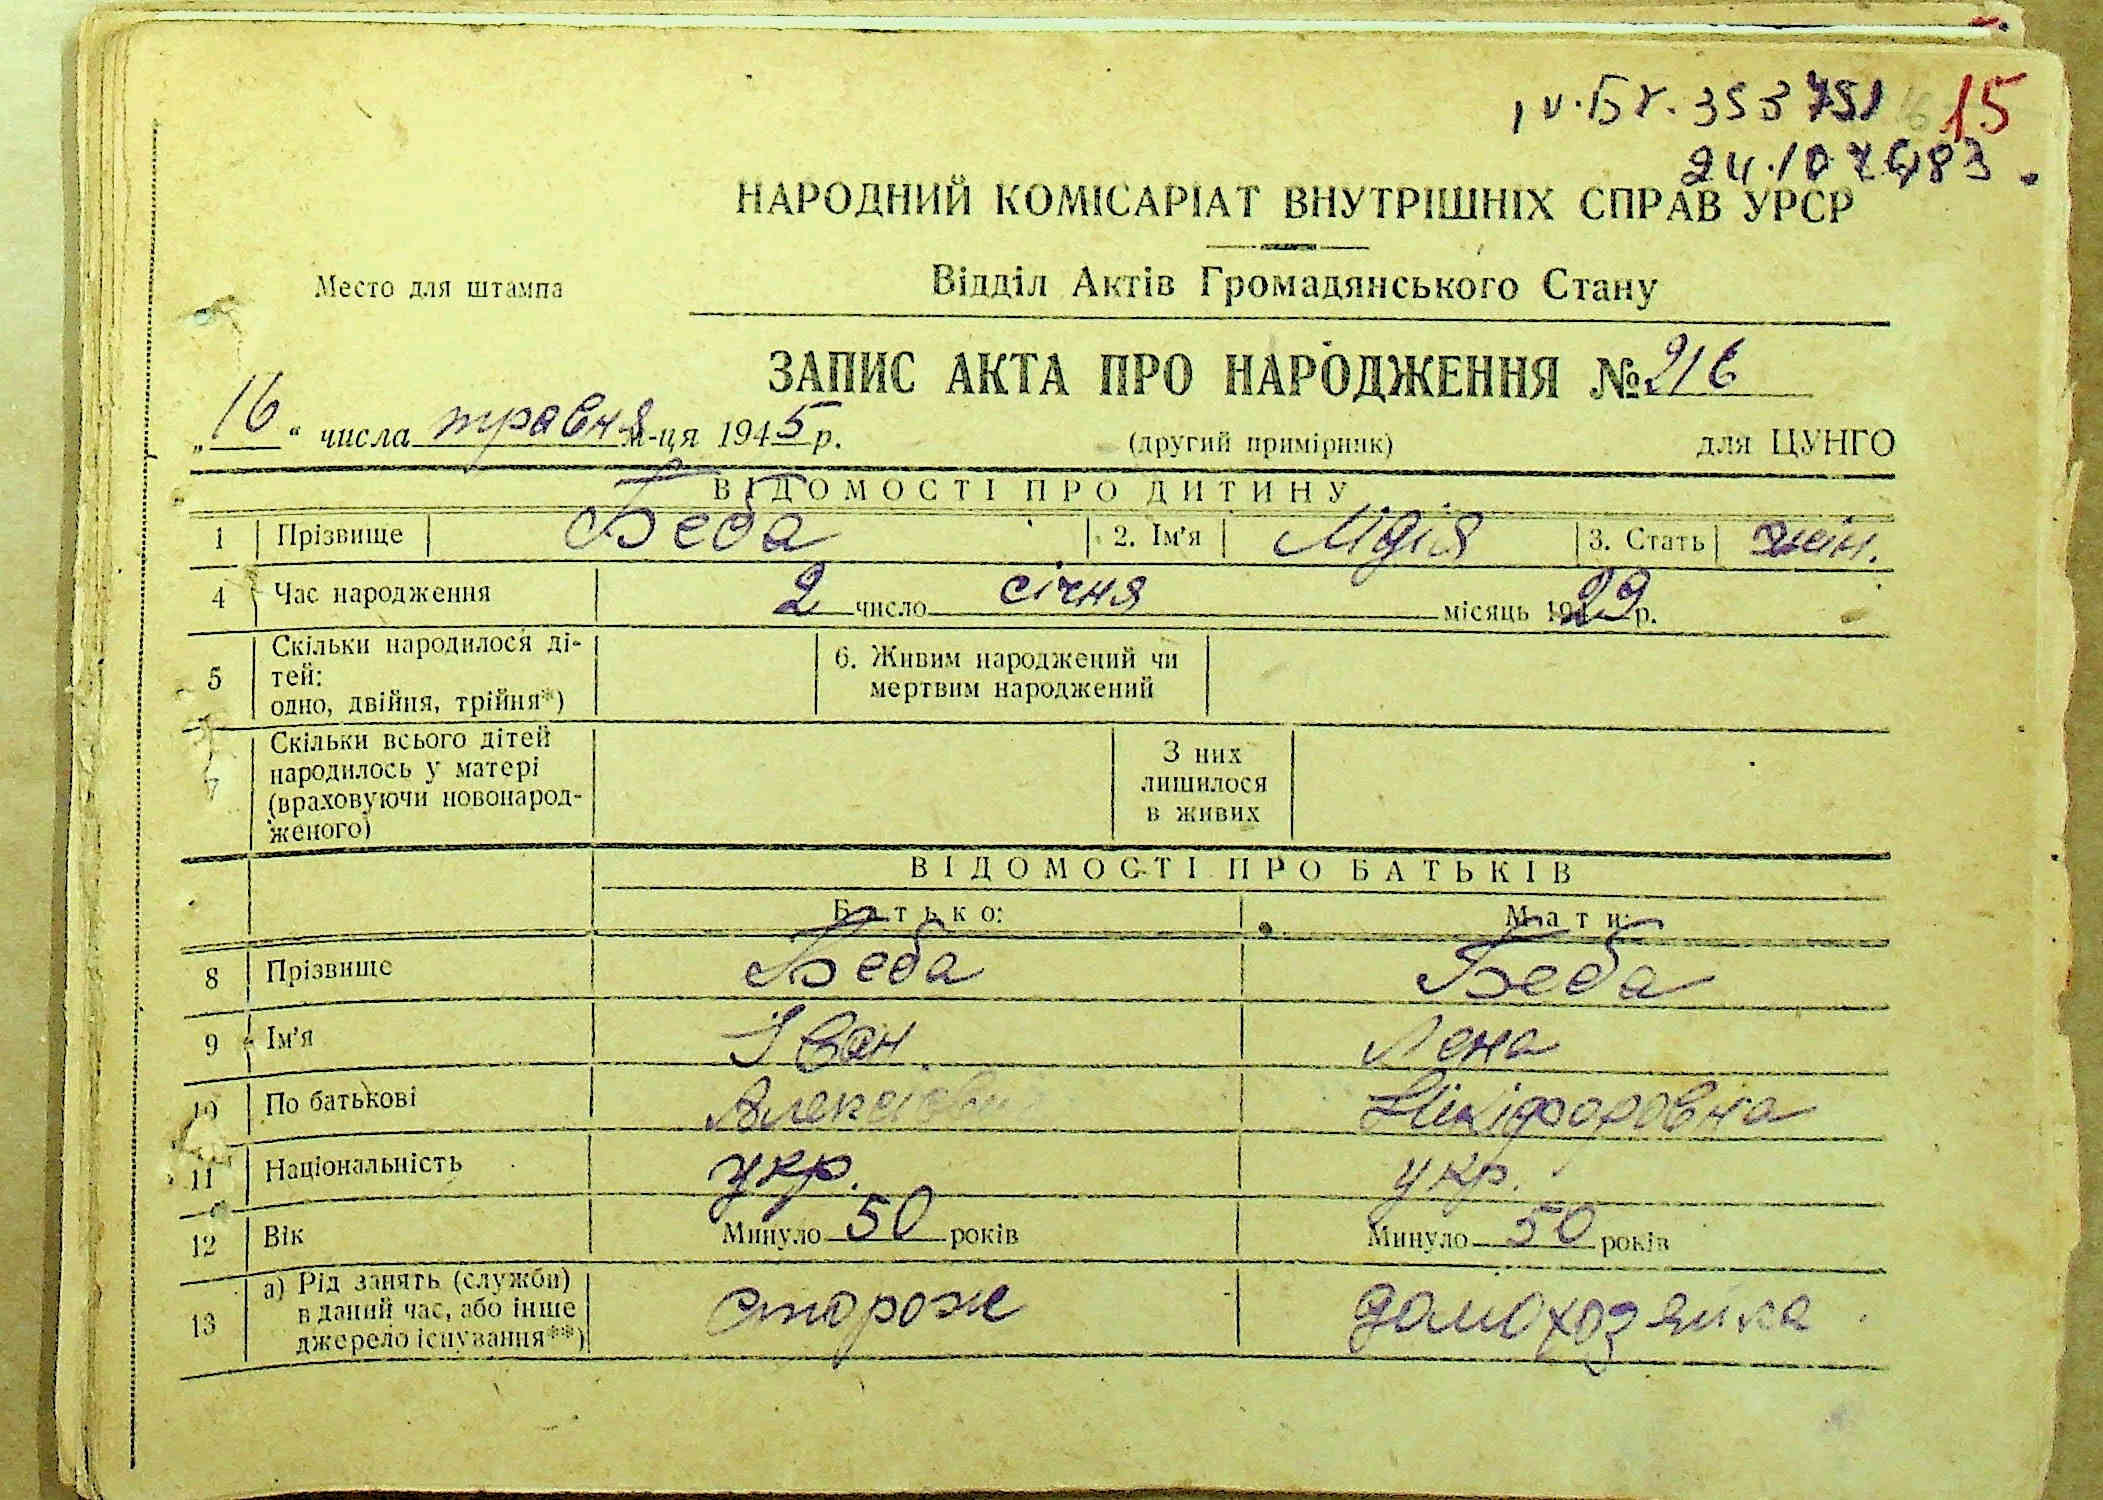 15
24.10
НАРОДНИЙ КОМІСАРІАТ ВНУТРІШНІХ СПРАВ УРСР
Место для штампа
Відділ Актів Громадянського Стану
ЗАПИС АКТА ПРО НАРОДЖЕННЯ № 216
„16“ числа травня м-ця 1945 р.
(другий примірник)
для ЦУНГО
ВІДОМОСТІ ПРО ДИТИНУ
1 Прізвище Беба 2. Ім'я Лідія 3. Стать жін.
4 Час народження 2 число січня місяць 1929 р.
5 Скільки народилося ді-
тей:
одно, двійня, трійня*)
6. Живим народжений чи
мертвим народжений
7 Скільки всього дітей
народилось у матері
(враховуючи новонарод-
женого)
З них
лишилося
в живих
ВІДОМОСТІ ПРО БАТЬКІВ
Батько: Мати:
8 Прізвище Беба Беба
9 Ім'я Іван Лена
10 По батькові Нікіфоровна
11 Національність укр. укр.
12 Вік Минуло 50 років Минуло 50 років
13 а) Рід занять (служби)
в даний час, або інше
джерело існування**)
сторож домохозяйка